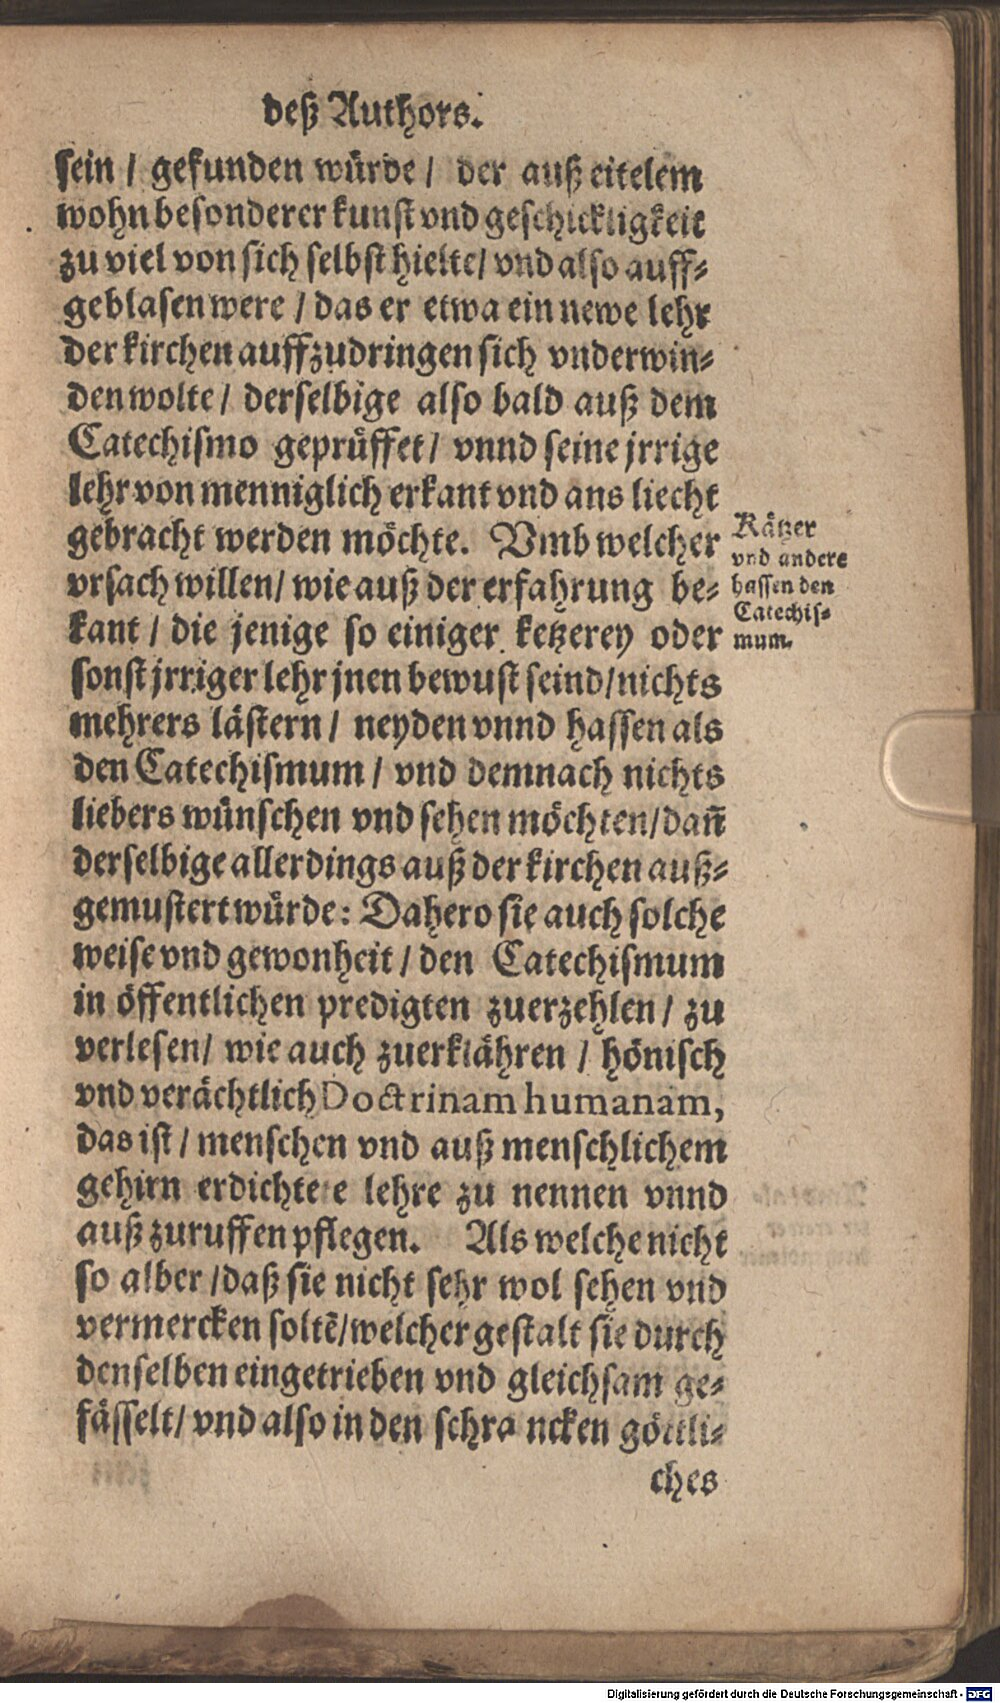 deß Authors.
sein / gefunden würde / der auß eitelem
wohn besonderer kunst vnd geschickligkeit
zu viel von sich selbst hielte / vnd also auff-
geblasen were / das er etwa ein newe lehr
der kirchen auffzudringen sich vnderwin-
den wolte / derselbige also bald auß dem
Catechismo geprüffet / vnnd seine jrrige
lehr von menniglich erkant vnd ans liecht
gebracht werden möchte. Vmb welcher
vrsach willen / wie auß der erfahrung be-
kant / die jenige so einiger ketzerey oder
sonst jrriger lehr jnen bewust seind / nichts
mehrers lästern / neyden vnnd hassen als
den Catechismum / vnd demnach nichts
liebers wünschen vnd sehen möchten / dañ
derselbige allerdings auß der kirchen auß-
gemustert würde: Dahero sie auch solche
weise vnd gewonheit / den Catechismum
in öffentlichen predigten zuerzehlen / zu
verlesen / wie auch zuerklähren / hönisch
vnd verächtlich Doctrinam humanam,
das ist / menschen vnd auß menschlichem
gehirn erdichtete lehre zu nennen vnnd
auß zuruffen pflegen. Als welche nicht
so alber / daß sie nicht sehr wol sehen vnd
vermercken soltẽ / welcher gestalt sie durch
denselben eingetrieben vnd gleichsam ge-
fässelt / vnd also in den schrancken göttli-
ches
Kätzer
vnd andere
hassen den
Catechis-
mum.
Digitalisierung gefördert durch die Deutsche Forschungsgemeinschaft - DFG